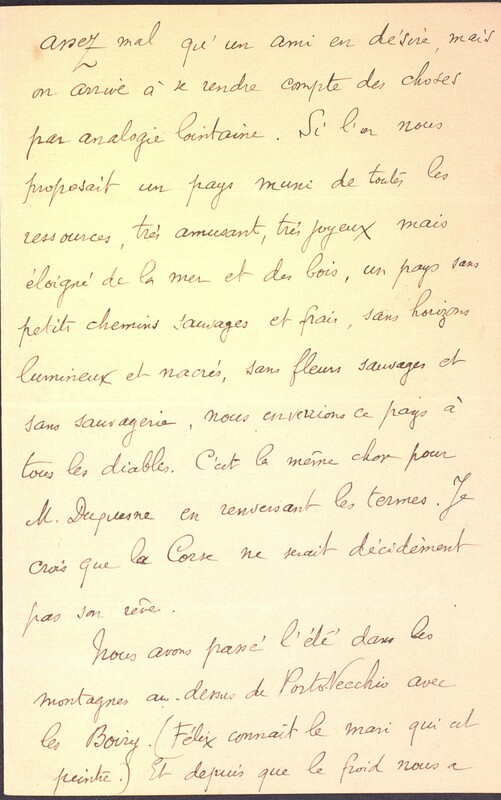 assez mal qu'un ami en désire, mais
on arrive à se rendre compte des choses
par analogie lointaine. Si l'on nous
proposait un pays muni de toutes les
ressources, très amusant, très joyeux mais
éloigné de la mer et des bois, un pays sans
petits chemins sauvages et frais, sans horizons
lumineux et nacrés, sans fleurs sauvages et
sans sauvagerie, nous enverrions ce pays à
tous les diables. C'est la même chose pour
M. Duquesne en renversant les termes. Je
crois que la Corse ne serait décidément
pas son rêve.
Nous avons passé l'été dans les
montagnes au-dessus de Porto Vecchio avec
les Boiry. (Félix connaît le mari qui est
peintre.) Et depuis que le froid nous a